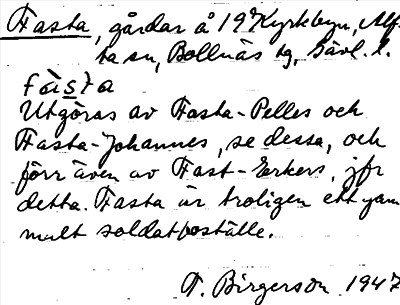 Fasta, gårdar å 19 Kyrkbyn, Alf-
ta sn, Bollnäs tg, Gävl. l.
fàsta
Utgöras av Fasta-Pelles och
Fasta-Johannes, se dessa, och
förr även av Fast-Erkers, jfr
detta. Fasta är troligen ett gam
malt soldatboställe.
F. Birgerson 1947